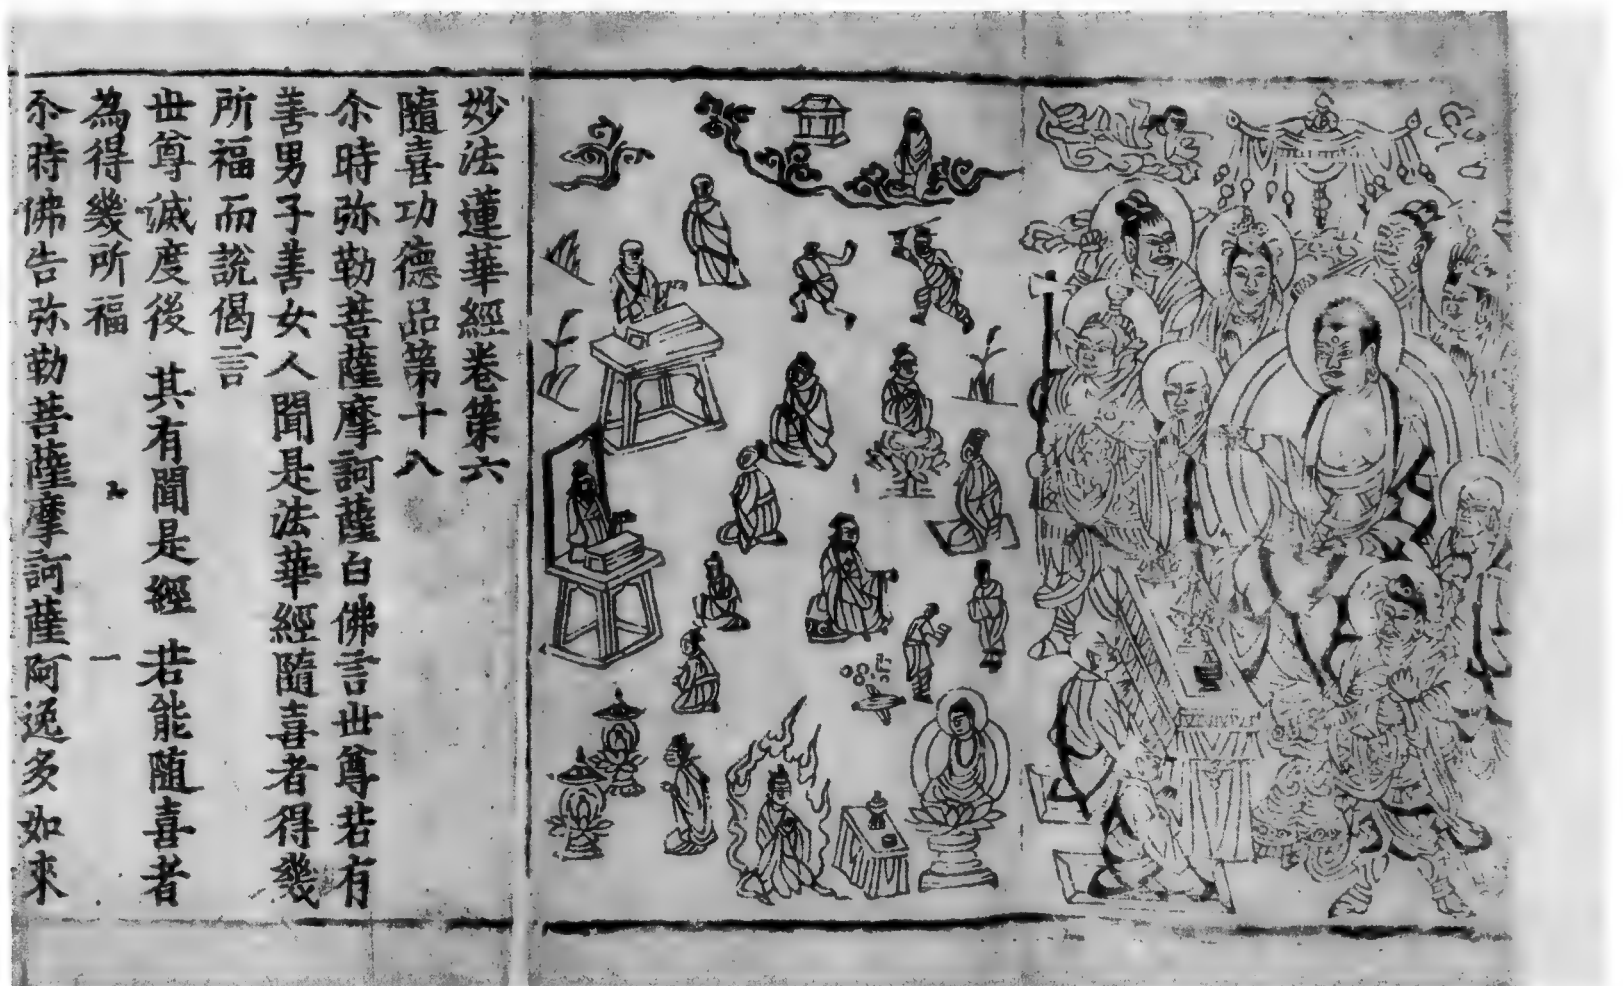 妙法蓮華經卷第六
隨喜功德品第十八
尒時弥勒菩薩摩訶薩白佛言世尊若有
善男子善女人聞是法華經隨喜者得幾
所福而說偈言
世尊滅度後 其有聞是經 若能隨喜者
為得幾所福
尒時佛告弥勒菩薩摩訶薩阿逸多如來
一